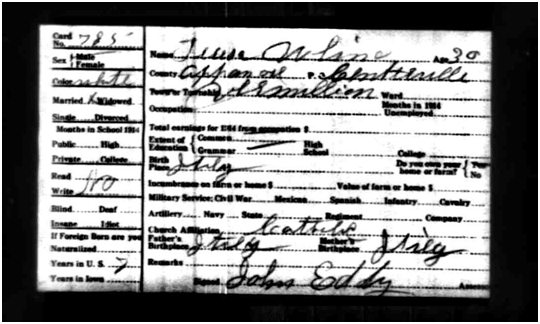 Card No. 785
Sex Male Female
Color white
Married Widowed
Single Divorced
Months in School 1914
Public High
Private College
Read
Write no
Blind Deaf
Insane Idiot
If Foreign Born are you Naturalized
Years in U. S. 7
Years in Iowa
Name Age 30
County Appanoose P. Centerville
Town or Township Vermillion Ward
Occupation Months in 1914 Unemployed
Total earnings for 1914 from occupation $
Extent of Education Common Grammar High School College
Birth Place Italy Do you own your home or farm? Yes No
Incumbrance on farm or home $ Value of farm or home $
Military Service: Civil War Mexican Spanish Infantry Cavalry
Artillery Navy State Regiment Company
Church Affiliation Catholic
Father's Birthplace Italy Mother's Birthplace Italy
Remarks
Signed John Eddy Assessor